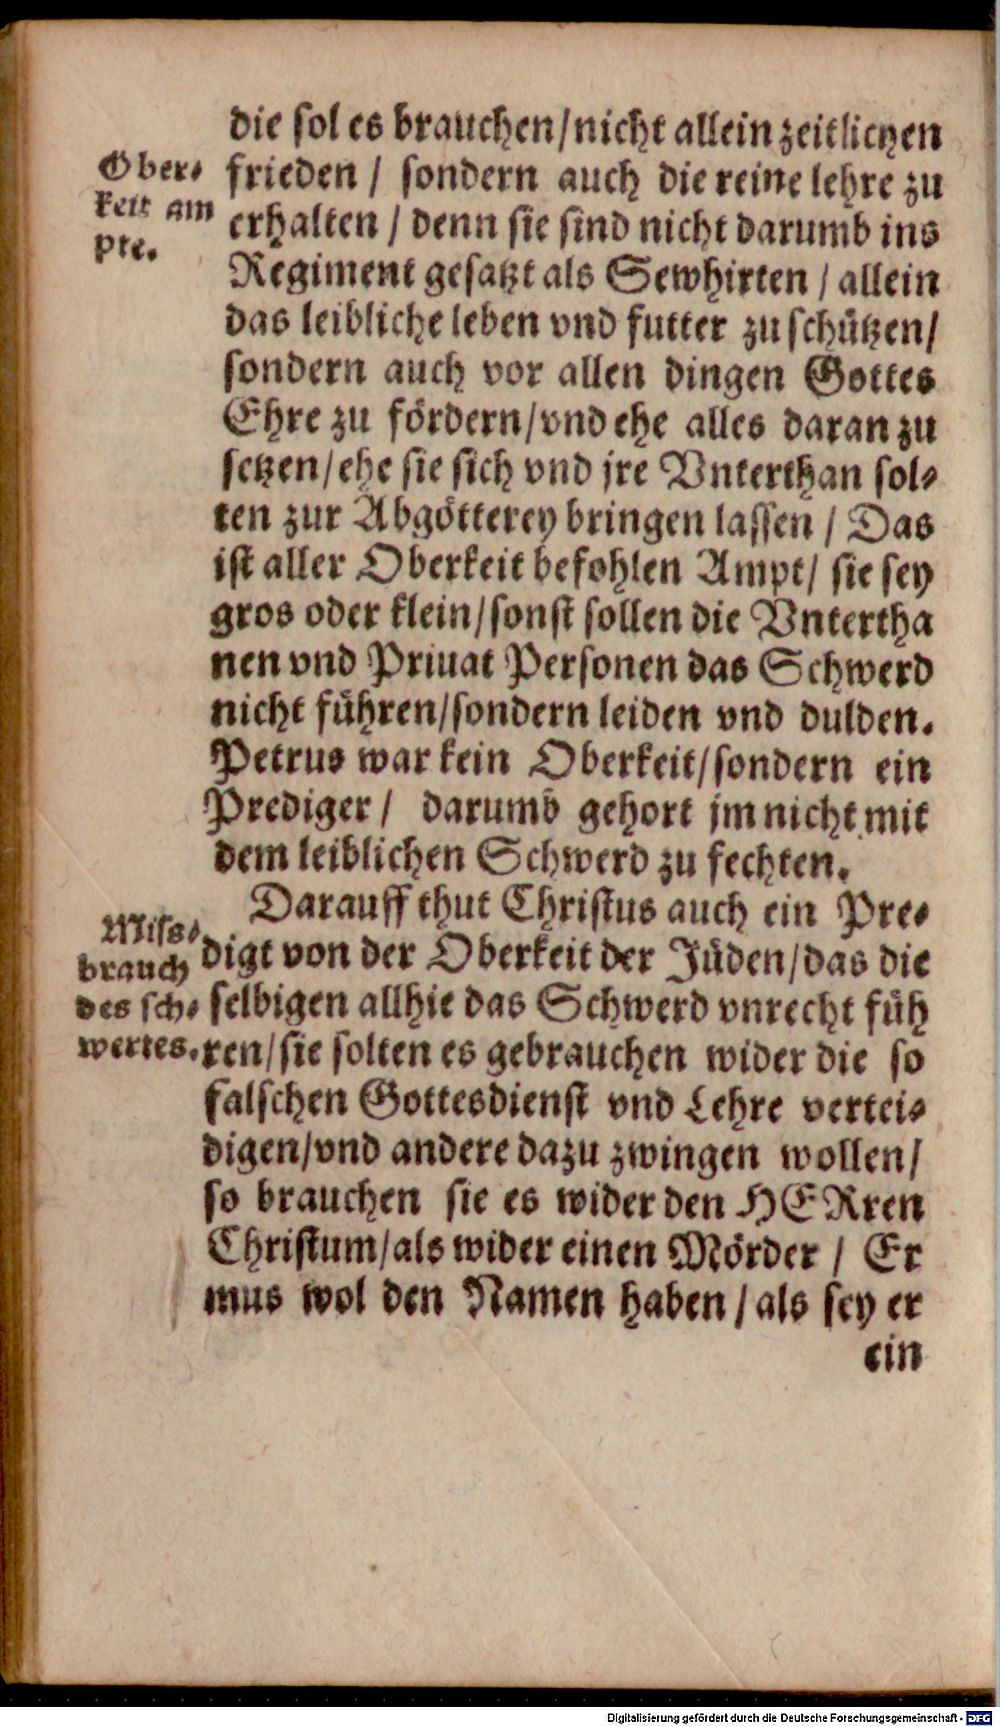 die sol es brauchen/nicht allein zeitlichen
frieden / sondern auch die reine lehre zu
erhalten / denn sie sind nicht darumb ins
Regiment gesatzt als Sewhirten / allein
das leibliche leben vnd futter zu schützen/
sondern auch vor allen dingen Gottes
Ehre zu fördern/vnd ehe alles daran zu
setzen/ehe sie sich vnd jre Vnterthan sol-
ten zur Abgötterey bringen lassen / Das
ist aller Oberkeit befohlen Ampt/ sie sey
gros oder klein/sonst sollen die Vntertha
nen vnd Priuat Personen das Schwerd
nicht führen/sondern leiden vnd dulden.
Petrus war kein Oberkeit/sondern ein
Prediger / darumb gehort jm nicht mit
dem leiblichen Schwerd zu fechten.
Darauff thut Christus auch ein Pre-
digt von der Oberkeit der Jüden/das die
selbigen allhie das Schwerd vnrecht füh
ren/sie solten es gebrauchen wider die so
falschen Gottesdienst vnd Lehre vertei-
digen/vnd andere dazu zwingen wollen/
so brauchen sie es wider den HERren
Christum/als wider einen Mörder / Er
mus wol den Namen haben / als sey er
ein
Ober-
keit am
pte.
Miss-
brauch
des sch-
wertes.
Digitalisierung gefördert durch die Deutsche Forschungsgemeinschaft - DFG